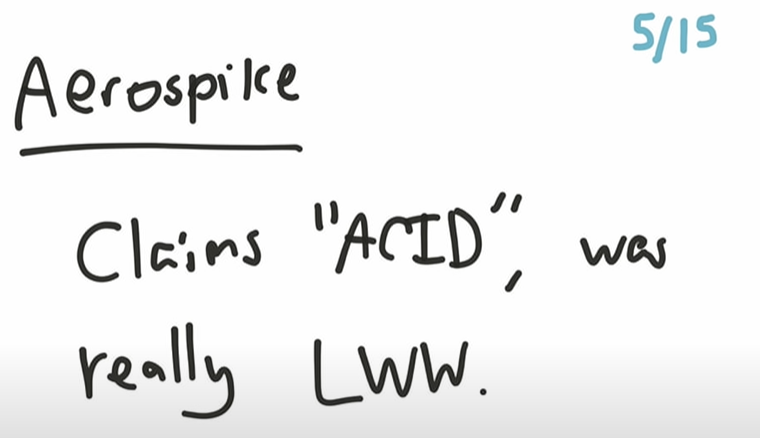 5/15
Aerospike
Claims "ACID", was
really LWW.